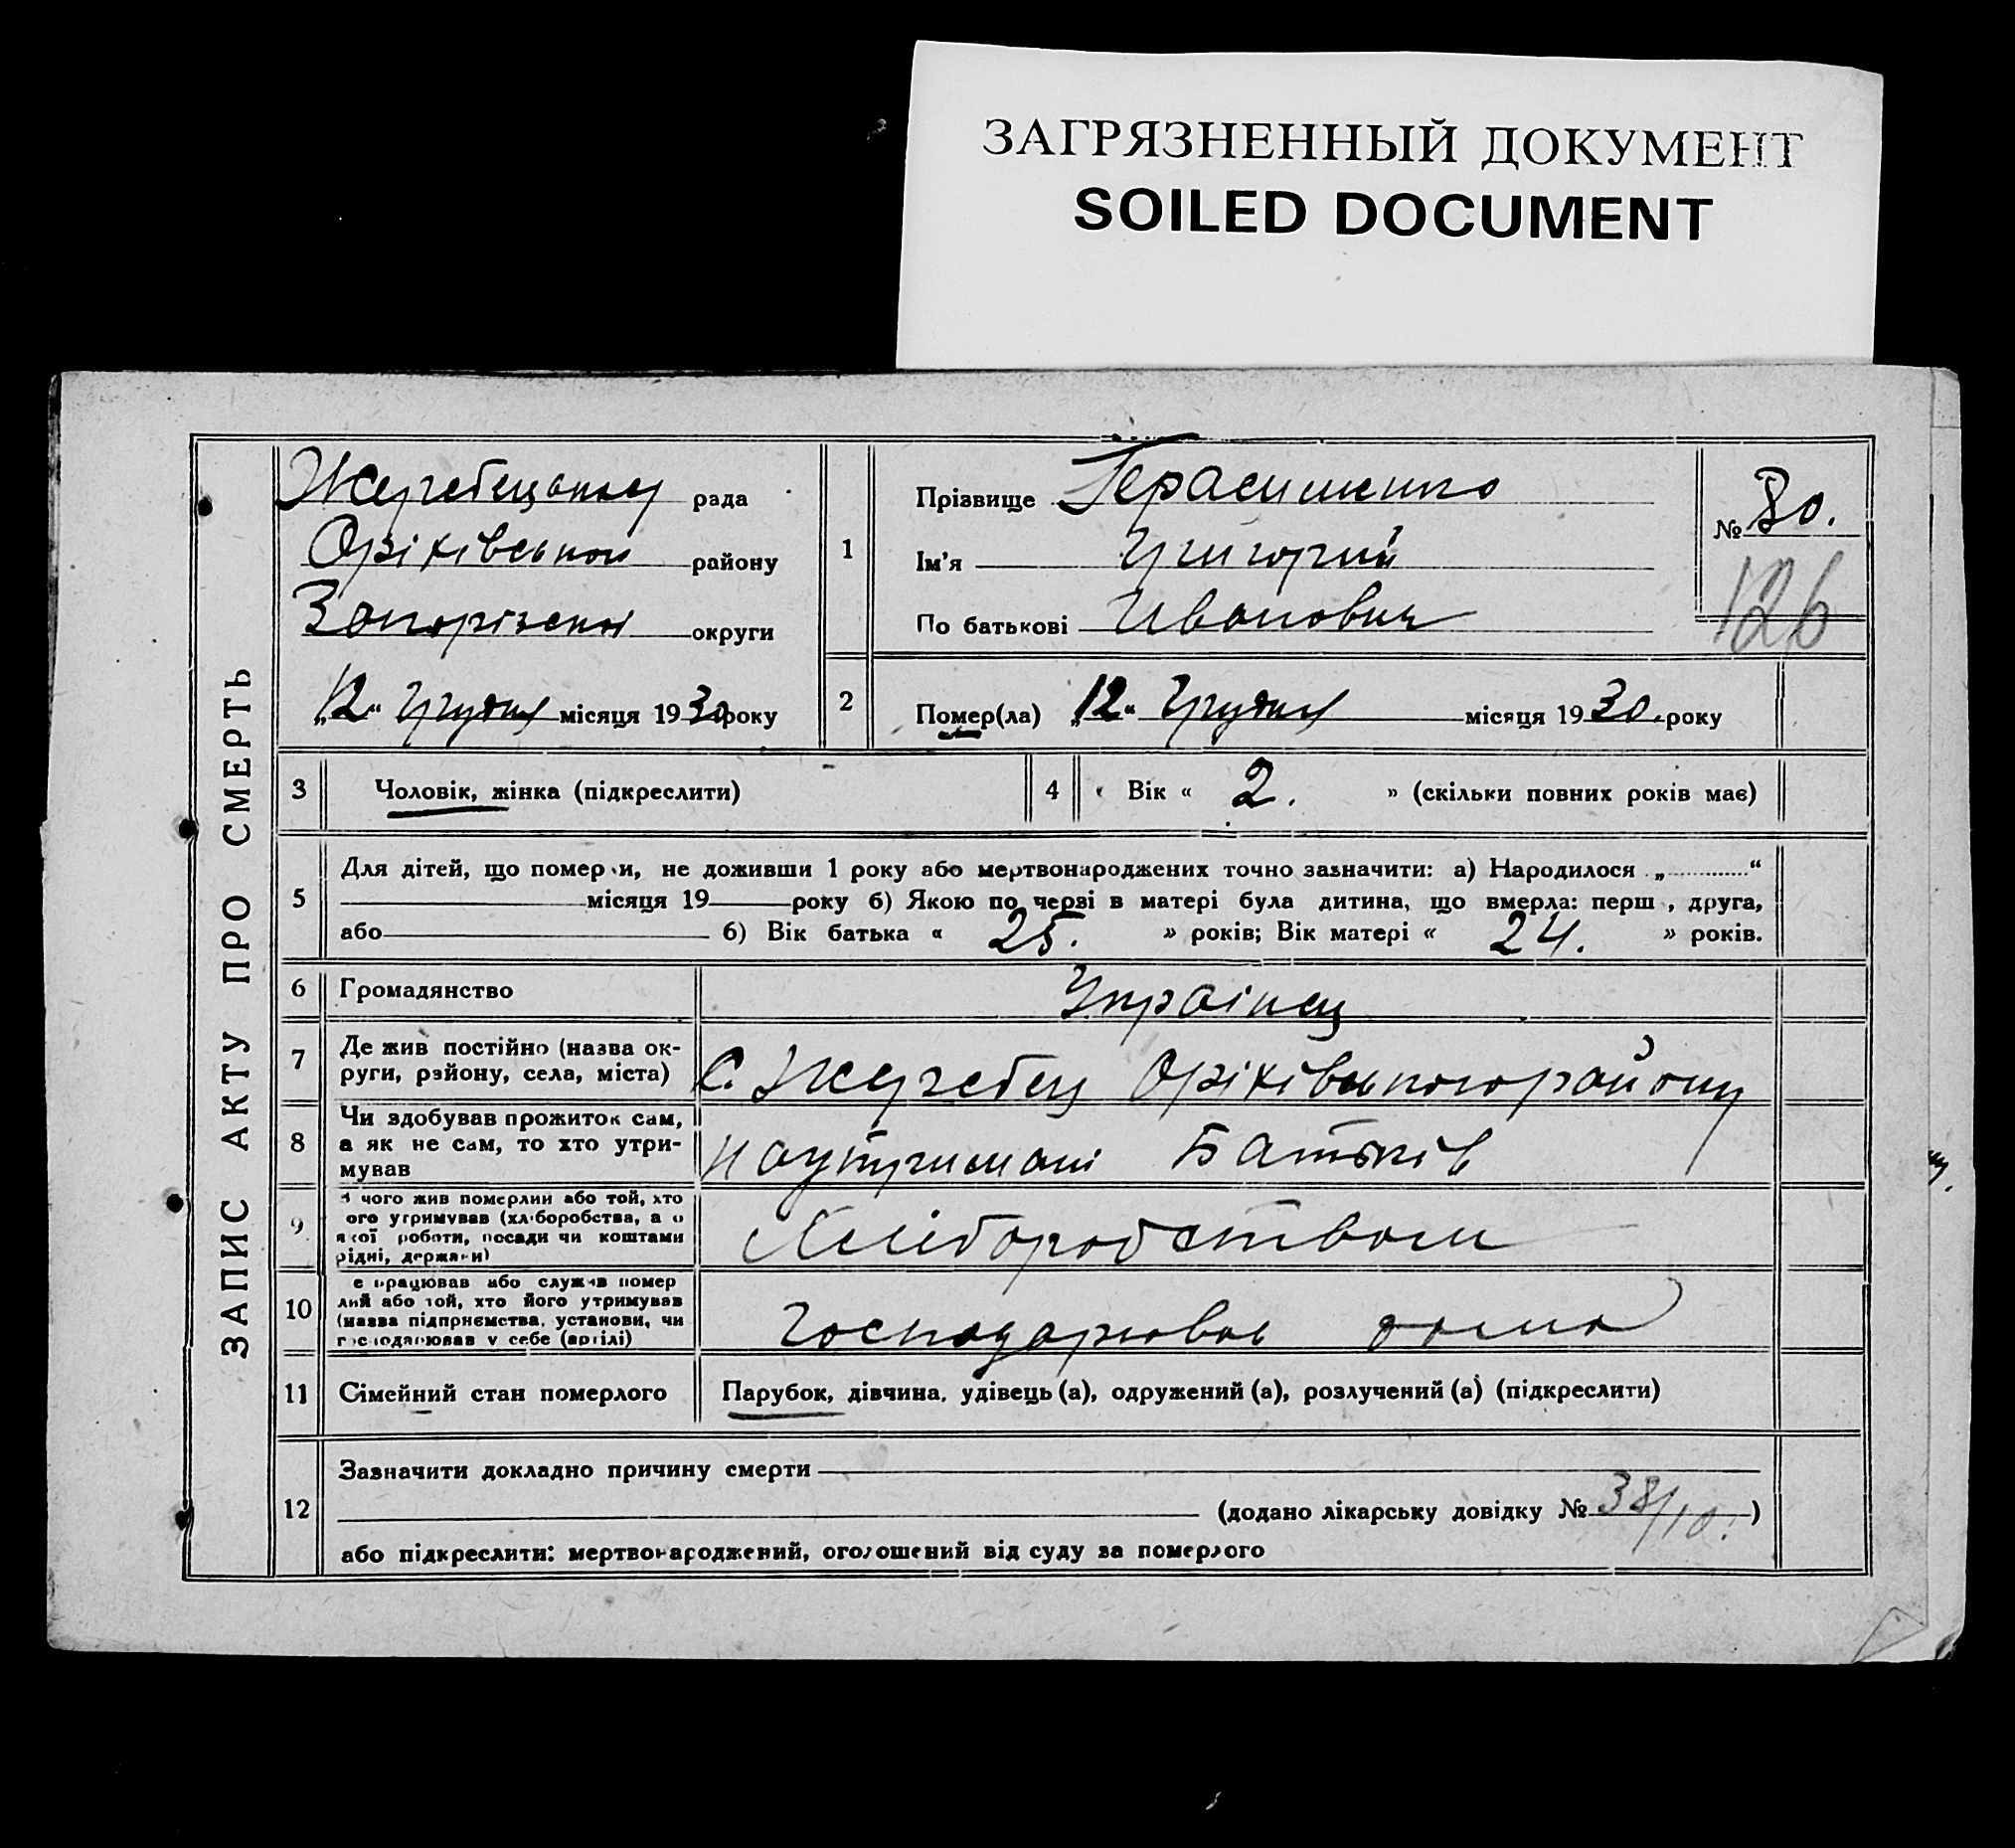 ЗАГРЯЗНЕННЫЙ ДОКУМЕНТ
SOILED DOCUMENT
ЗАПИС АКТУ ПРО СМЕРТЬ
Жеребецька рада
Оріхівського району
Запорізької округи
„12“ Грудня місяця 1930 року
1
Прізвище Герасименко
Ім'я Григорий
По батькові Иванович
№ 80.
126
2
Помер(ла) „12“ Грудня місяця 1930. року
3 Чоловік, жінка (підкреслити)
4 « Вік « 2. » (скільки повних років має)
5
Для дітей, що помер и, не доживши 1 року або мертвонароджених точно зазначити: а) Народилося „ “
місяця 19 року б) Якою по черві в матері була дитина, що вмерла: перш , друга,
або б) Вік батька « 25. » років; Вік матері « 24. » років.
6 Громадянство Українец
7
Де жив постійно (назва ок-
руги, району, села, міста)
С. Жеребец Оріхівського району
8
Чи здобував прожиток сам,
а як не сам, то хто утри-
мував
на утримані Батьків
9
З чого жив померлий або той, хто
ого утримував (хліборобства, а о
якої роботи, посади чи коштами
рідні, держави)
Хліборобством
10
е працював або служив помер
лий або той, хто його утримував
(назва підприємства, установи, чи
господарював у себе (артілі)
Господарював дома
11 Сімейний стан померлого
Парубок, дівчина, удівець (а), одружений (а), розлучений (а) (підкреслити)
12
Зазначити докладно причину смерти
(додано лікарську довідку № 38/10. )
або підкреслити: мертвонароджений, оголошений від суду за померлого